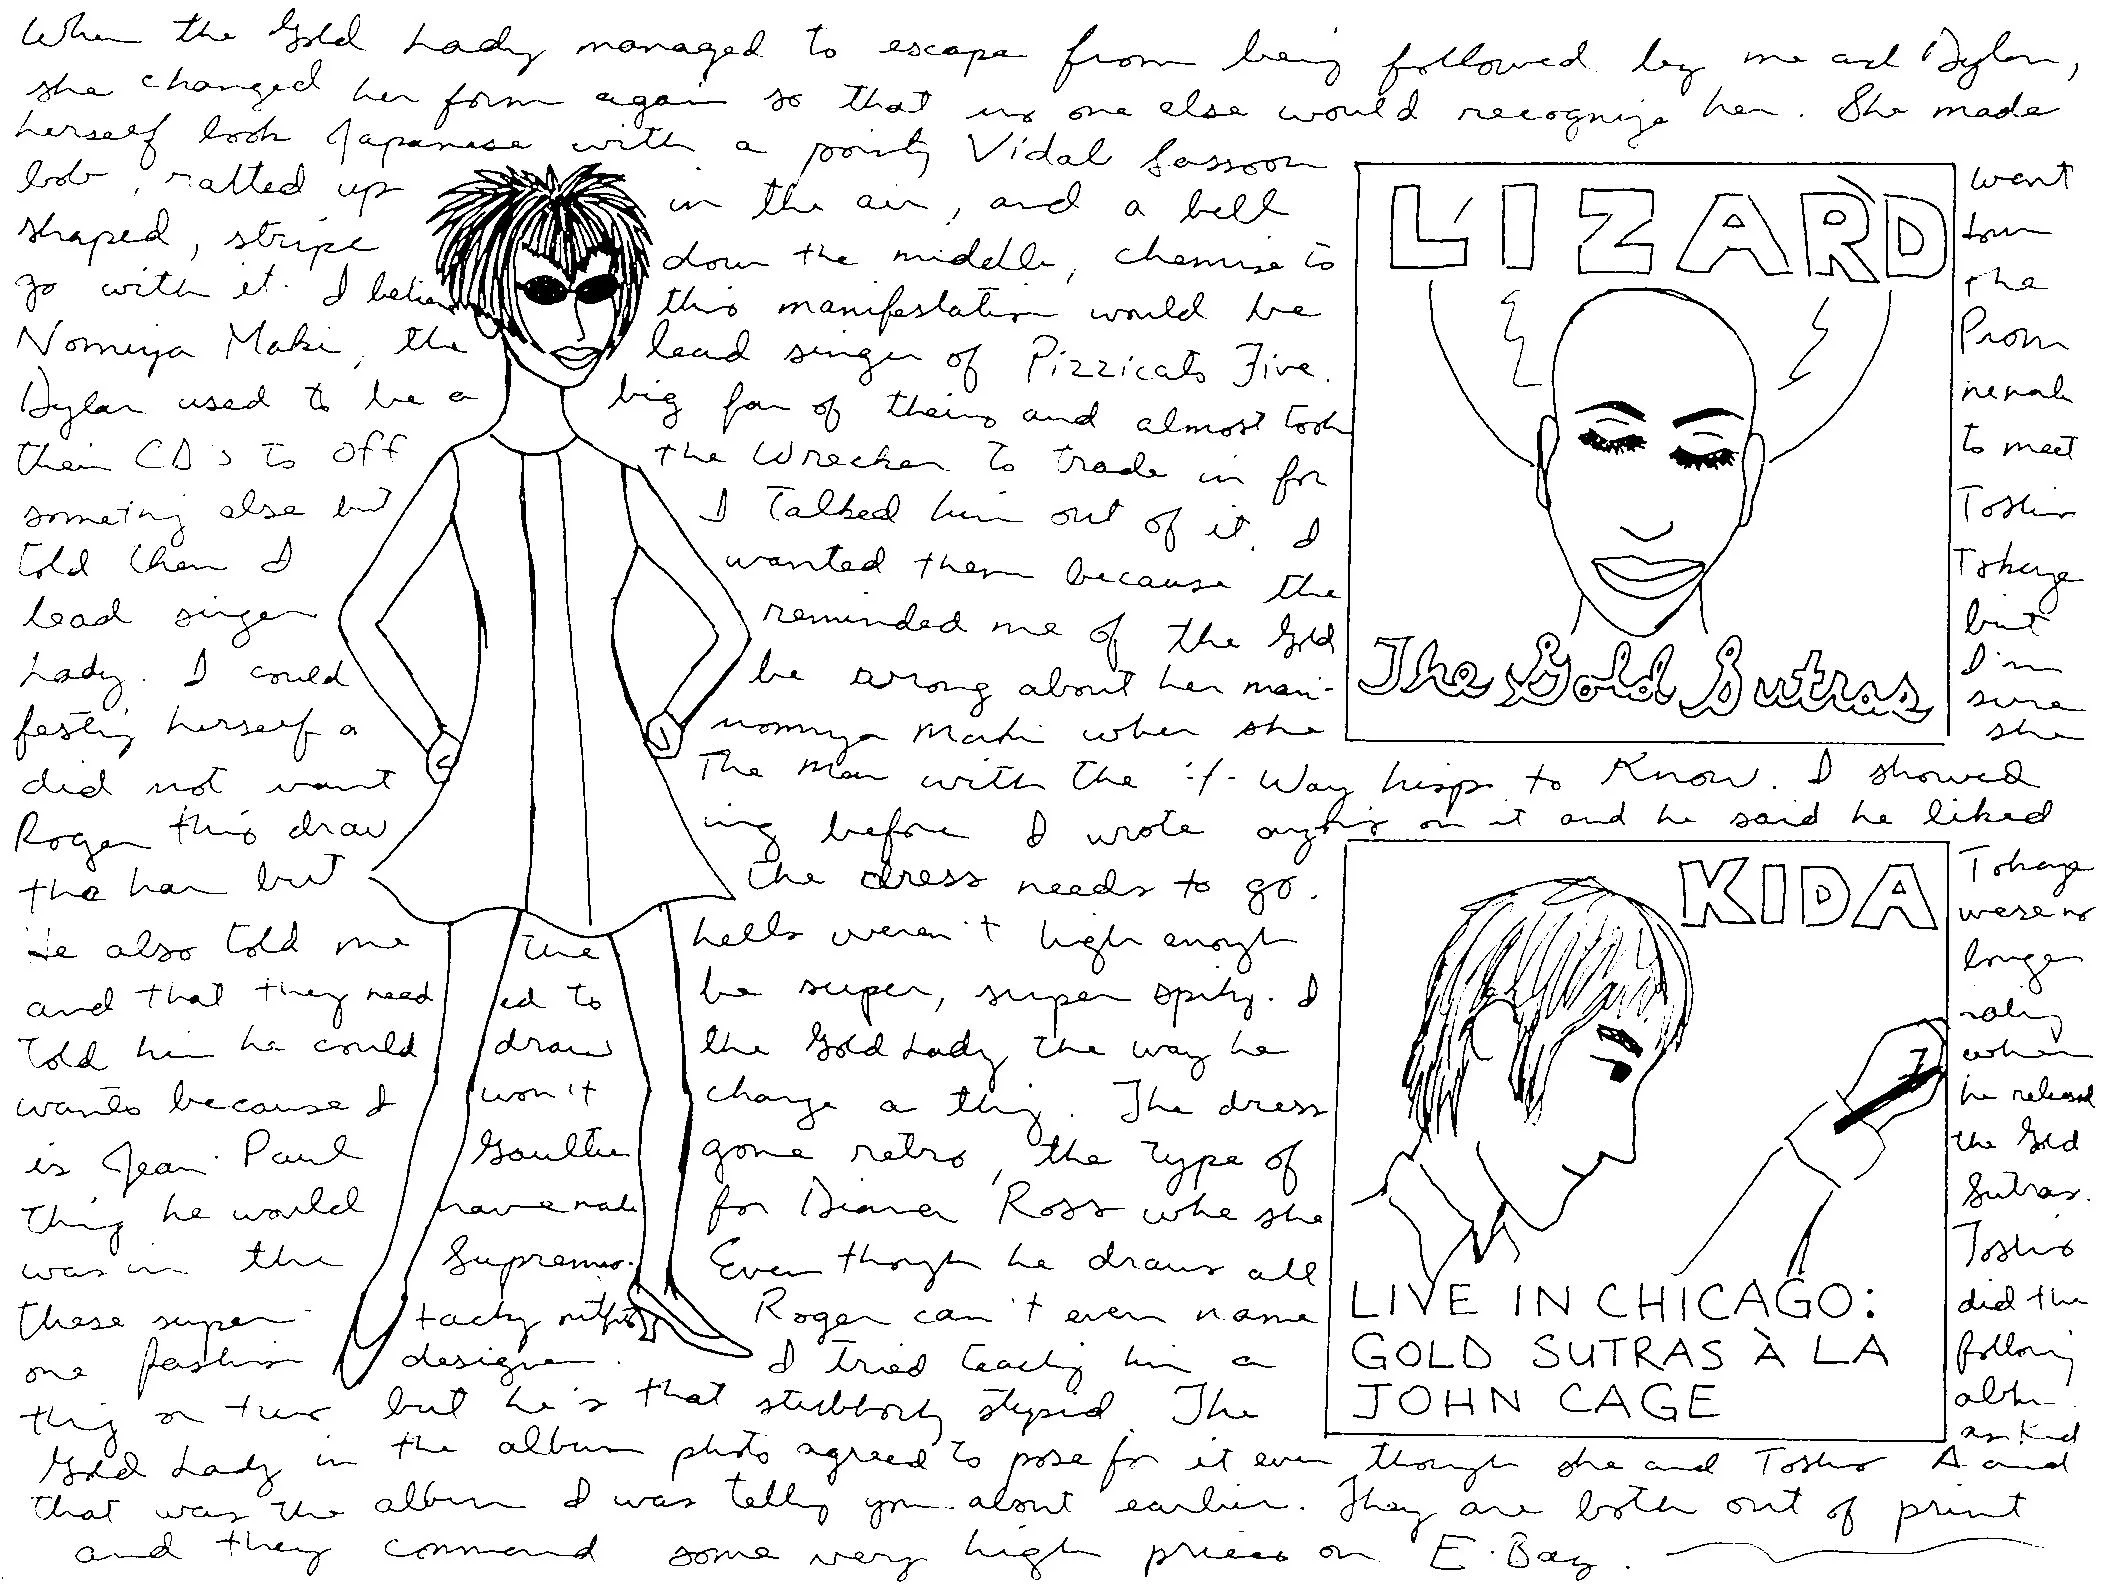 When the Gold Lady managed to escape from being followed by me and Dylan,
she changed her form again so that no one else would recognize her. She made
herself look Japanese with a pointy Vidal Sassoon
bob, ratted up in the air, and a bell
shaped, stripe down the middle, chemise to
go with it. I believe this manifestation would be
Nomiya Maki, the lead singer of Pizzicato Five.
Dylan used to be a big fan of theirs and almost took
their CD's to Off the Wrecker to trade in for
something else but I talked him out of it. I
told them I wanted them because the
lead singer reminded me of the Gold
Lady. I could be wrong about her mani-
festing herself a nomiya Maki when she
went
down
the
Prom
nenade
to meet
Toshio
Tokage
but
I'm
sure
she
LIZARD
The Gold Sutras
did not want The Man with the :/- Way hisps to Know. I showed
Roger this drawing before I wrote anything on it and he said he liked
the hair but the dress needs to go.
He also told me the hells weren't high enough
and that they needed to be super, super spity. I
told him he could draw the Gold Lady the way he
wants because I won't change a thing. The dress
is Jean Paul Gaultier gone retro, the type of
thing he would have made for Diana Ross whe she
was in the Supremes. Even though he draws all
these super tacky outfits Roger can't even name
one fashion designer. I tried teaching him a
thing or two but he's that stubbornly stupid. The
KIDA
LIVE IN CHICAGO:
GOLD SUTRAS À LA
JOHN CAGE
Gold Lady in the album photo agreed to pose for it even though she and Toshio
Tokage
were no
longer
when
he released
the Gold
Sutras.
Toshio
did the
following
album
as Kid
A and
that was the album I was telling you about earlier. They are both out of print
and they command some very high prices on E-Bay.